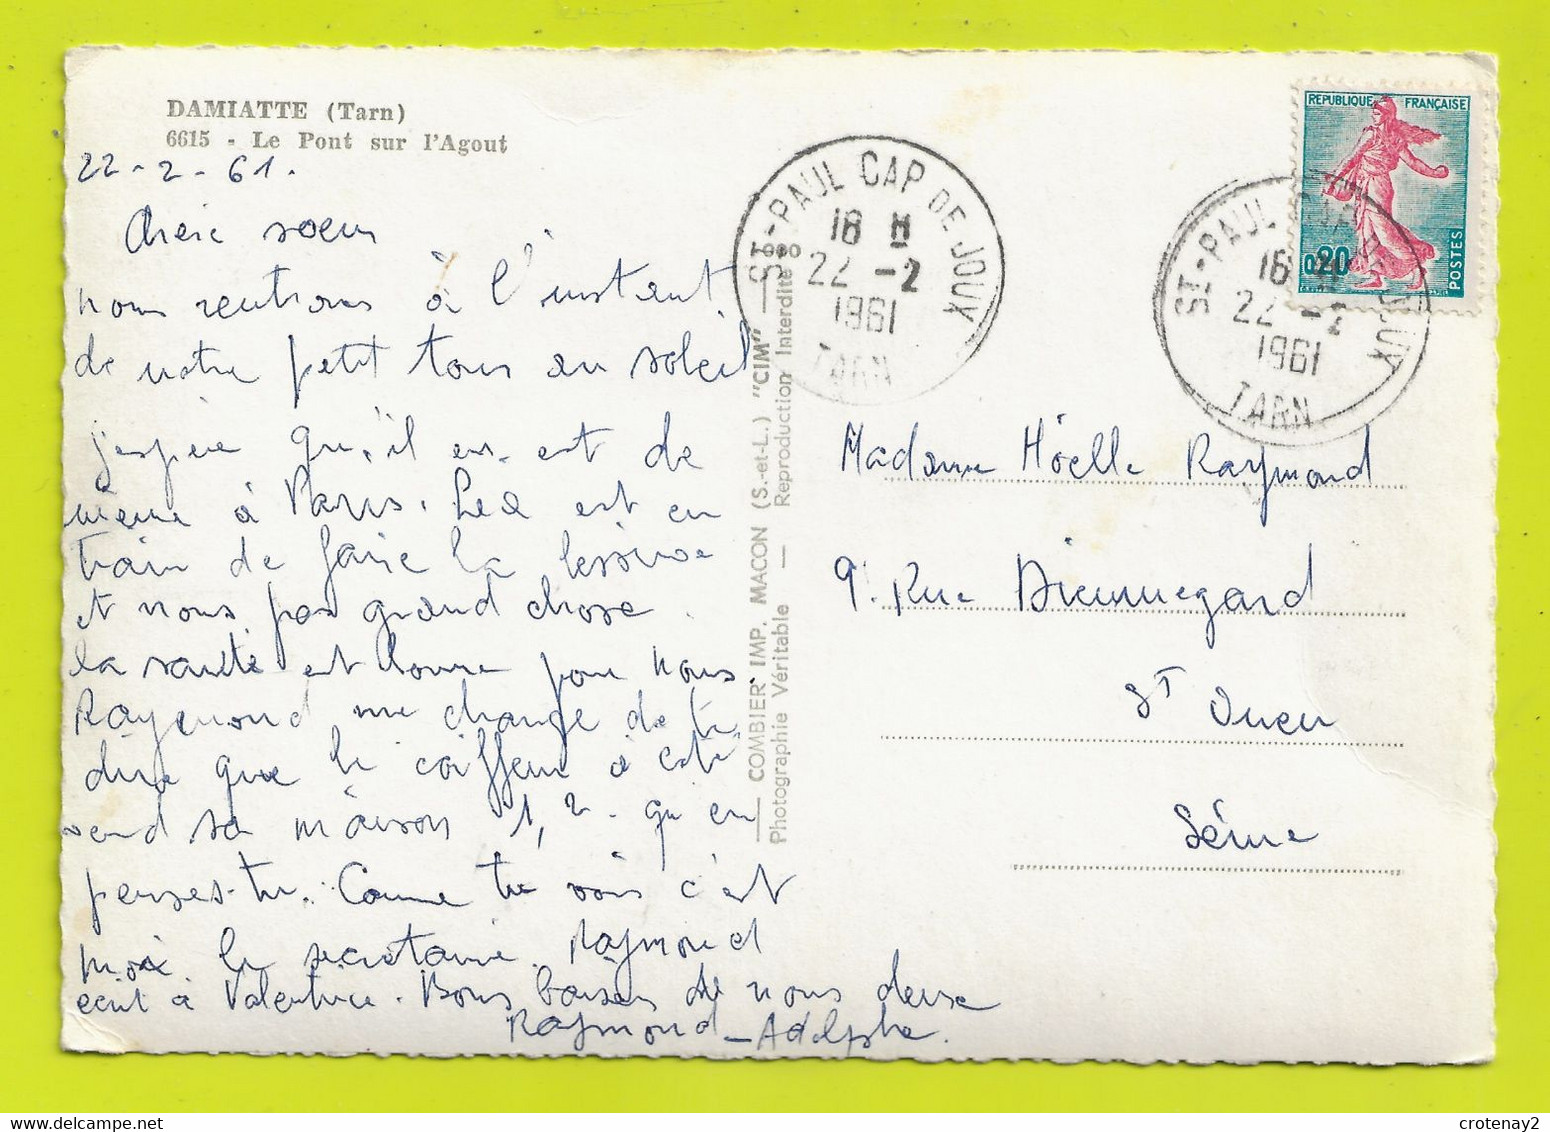 DAMIATTE (Tarn)
6615 - Le Pont sur l'Agout
22-2-61.
Chère sœur
nous rentrons à l'instant
de notre petit tour au soleil
j'espère qu'il en est de
même à Paris. Léa est en
train de faire la lessive
et nous pas grand chose.
la santé est bonne pour nous
Raymond me charge de te
dire que le coiffeur à coté
vend sa maison 1,2. qu'en
penses-tu. Comme tu vois c'est
moi le secrétaire. Raymond
écrit à Valentine. Bons baisers de nous deux
Raymond - Adolphe.
COMBIER IMP. MACON (S.-et-L.) "CIM"
Photographie Véritable — Reproduction Interdite
ST-PAUL CAP DE JOUX
18 H
22 -2
1961
TARN
REPUBLIQUE FRANÇAISE
0,20
POSTES
ST-PAUL CAP DE JOUX
16 H
22 -2
1961
TARN
Madame Hoëlle Raymond
9. Rue Dieumegard
St Ouen
Seine
crotenay2